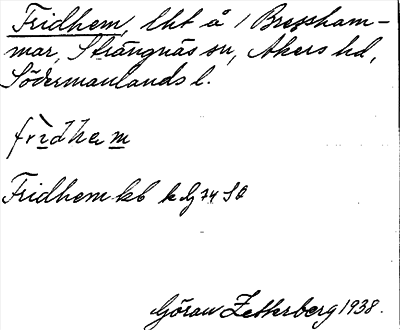 Fridhem, lht å 1 Bressham-
mar, Strängnäs sn, Åkers hd,
Södermanlands l.
fridhem
Fridhem kb
Göran Zetterberg 1938.